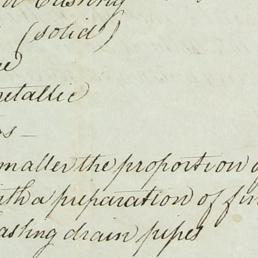 (solid)
metallic
smaller the proportion o
with a preparation of fin
drain pipes